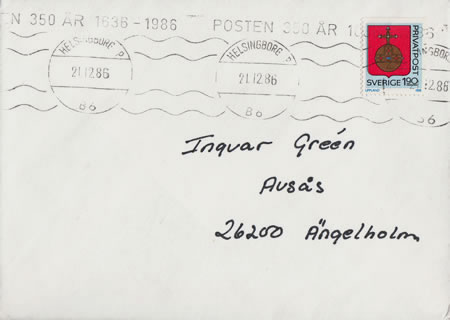 EN 350 ÅR 1636-1986 POSTEN 350 ÅR
HELSINGBORG
21.12.86
B6
HELSINGBORG
21.12.86
B6
PRIVATPOST
SVERIGE 1.90
UPPLAND
Ingvar Greén
Ausås
26200 Ängelholm